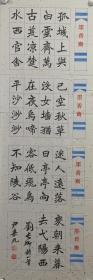 孤城上與
白雲齊萬
古荒涼楚
水西官舍
已空秋草
綠女墻猶
在夜烏啼
平沙渺渺
迷人遠落
日亭亭向
客低飛鳥
不知陵谷
朝來暮
去弋陽溪
劉長卿詩